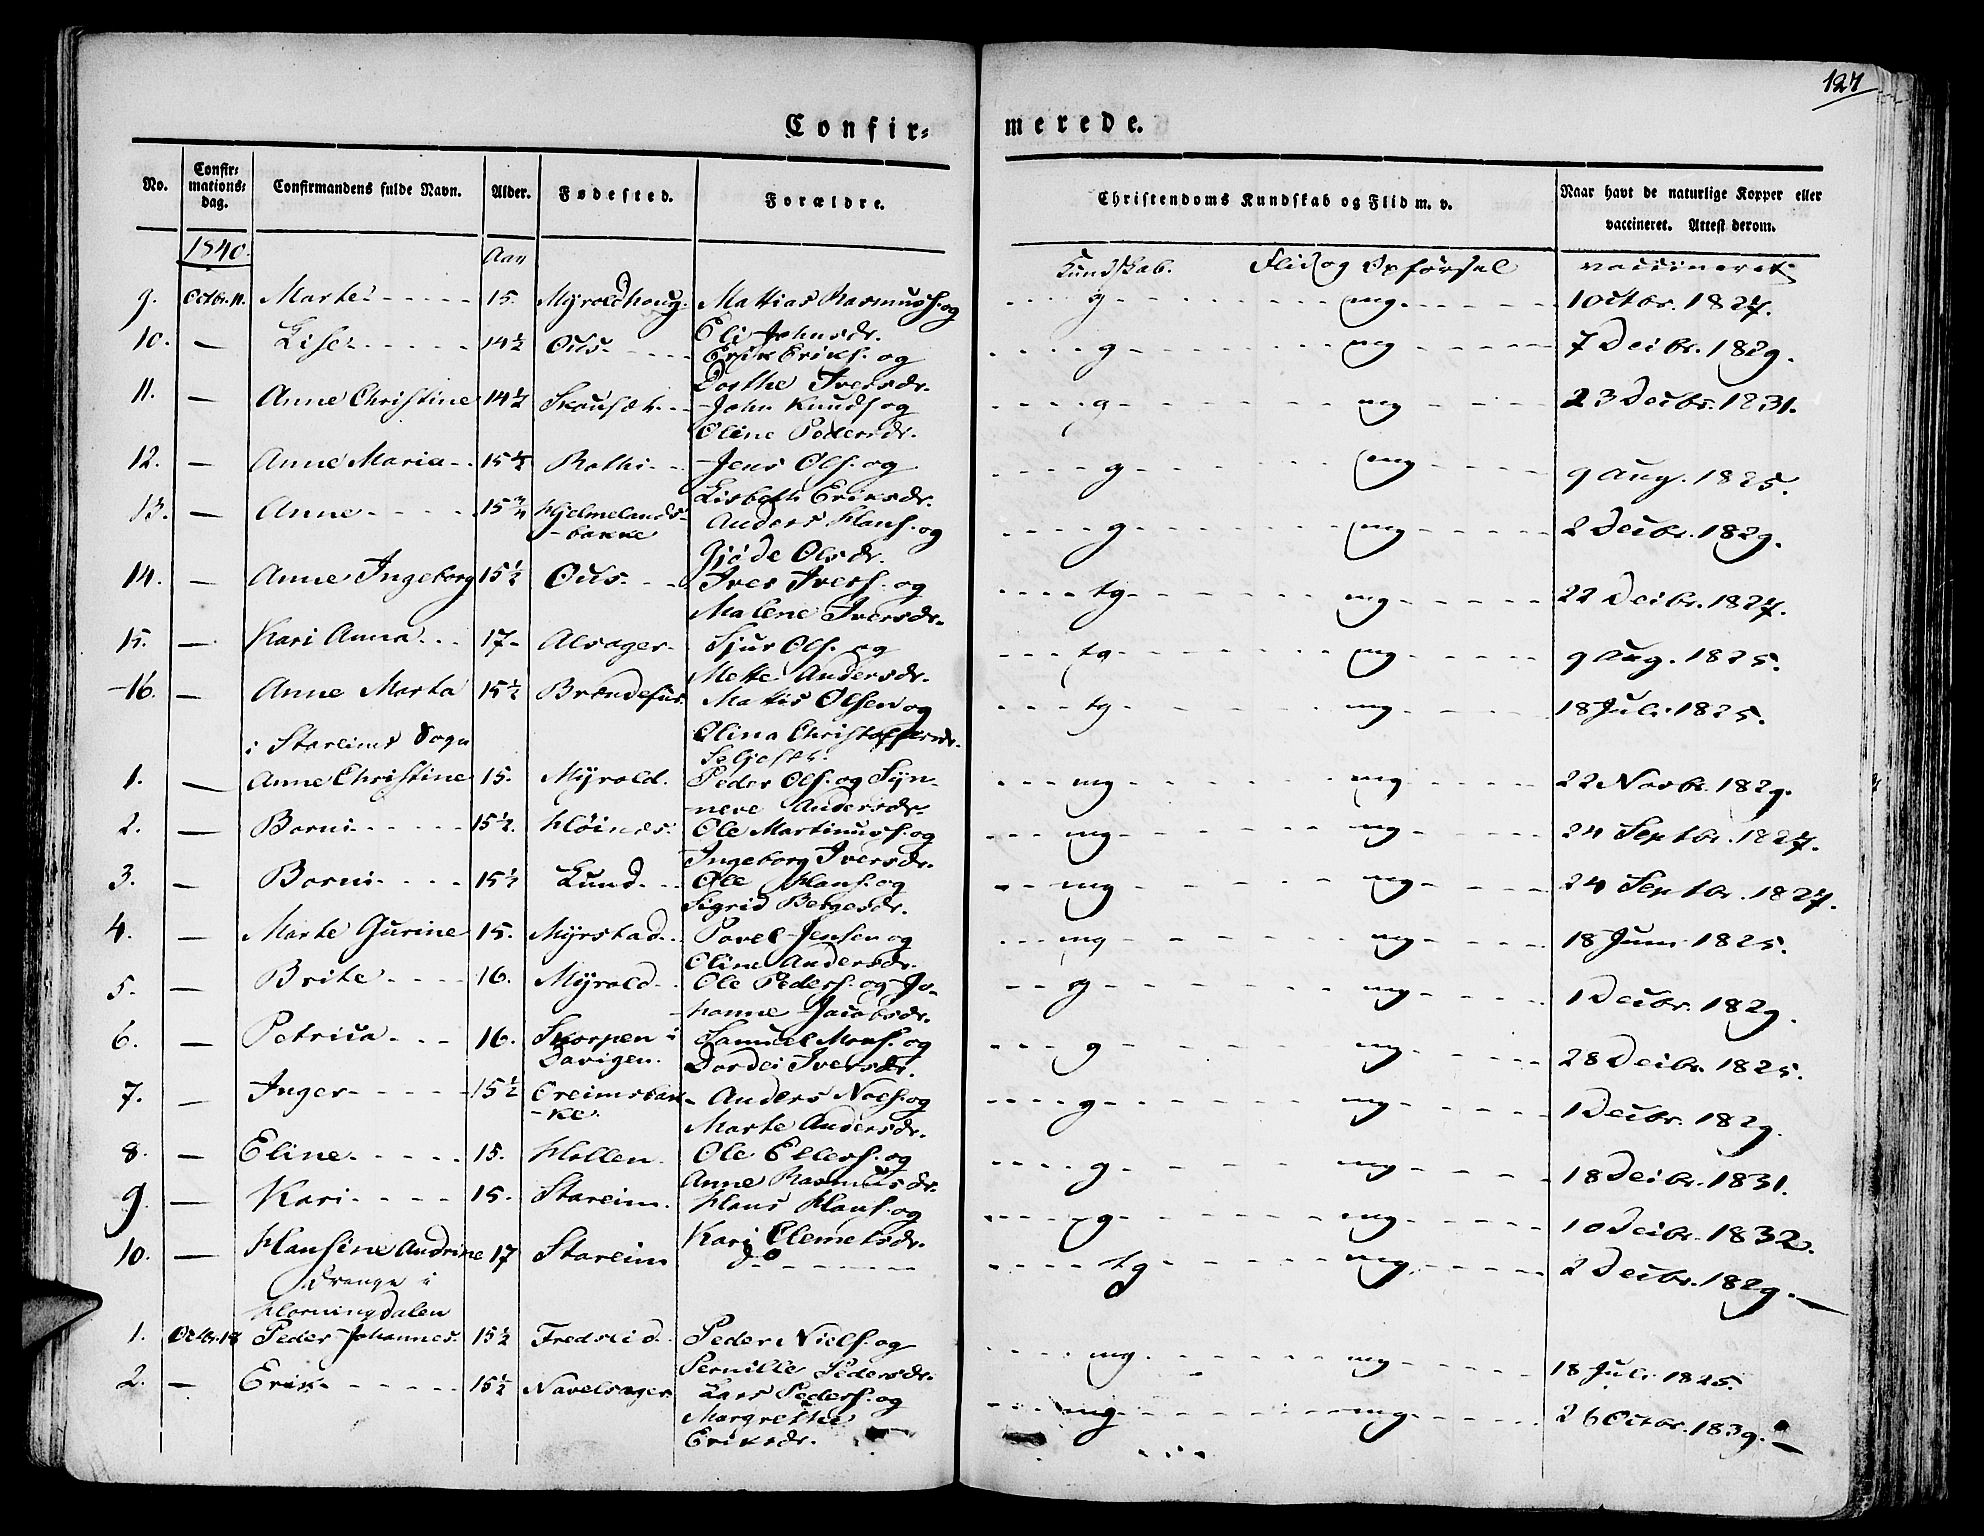 127
Confir= merede.
No. Confir=mations=dag. Confirmandens fulde Navn. Alder. Fødested. Forældre. Christendoms Kundskab og Flid m. v. Naar havt de naturlige Kopper eller vaccineret. Attest derom.
1840. Aar Kundskab. Flid og Opførsel vaccineret
9. Octbr. 11. Marte 15. Myroldhoug Mattias Rasmuss. og g mg 1 Octbr. 1827.
Eli Johnsdr.
10. — Lise 14½ Ous Erik Eriks. og g mg 7 Decbr. 1829.
Dorthe Iversdr.
11. — Anne Christine 14½ John Knuds. og g mg 23 Decbr. 1831.
Oline Pedersdr.
12. — Anne Maria 15½ Rothi Jens Ols. og g mg 9 Aug. 1825.
Lisbeth Eriksdr.
13. — Anne 15¾ Hjelmelands- Anders Hans. og g mg 2 Decbr. 1829.
-bakke Gjøde Olsdr.
14. — Anne Ingeborg 15½ Ous Iver Ivers. og tg mg 22 Decbr. 1827.
Malene Iversdr.
15. — Kari Anna 17 Alsager Sjur Ols. og tg mg 9 Aug. 1825.
Mette Andersdr.
16. — Anne Marta 15½ Matis Olsen og tg mg 18 Juli 1825.
Olina Christoffersdr.
i Stareims Sogn
1. — Anne Christine 15. Myrold. Peder Ols. og Syn- mg mg 22 Novbr. 1829.
neve Andersdr.
2. — Borni 15½. Høines Ole Martinuss. og mg mg 24 Septbr. 1827.
Ingeborg Iversdr.
3. — Borni 15½ Lund Ole Hans. og mg mg 24 Septbr. 1827.
Sigrid Bergesdr.
4. — Marte Gurine 15. Myrstad Povel Jensen og mg mg 18 Juni 1825.
Oline Andersdr.
5. — Brite 16. Myrold Ole Peders. og Jo- g mg 1 Decbr. 1829.
hanne Jacobsdr.
6. — Petrica 16. Skorpen i Samuel Mons. og g mg 28 Decbr. 1825.
Davigen. Dordei Iversdr.
7. — Inger 15½ Creimsbak- Anders Noes. og g mg 1 Decbr. 1829.
-ke. Marte Andersdr.
8. — Eline 15. Hollen Ole Ellers. og g mg 18 Decbr. 1831.
Anne Rasmusdr.
9 — Kari 15. Stareim. Hans Hans. og g mg 10 Decbr. 1832.
Kari Clemetsdr.
10. — Hansine Andrine 17 Stareim do tg mg 2 Decbr. 1829.
Drange i
Horningdalen
1. Octbr. 18 Peder Johannes. 15½ Fredsvid Peder Niels. og mg mg 18 Juli 1825.
Pernille Pedersdr.
2. — Erik 15½ Navelsager Lars Peders. og mg mg 26 Octbr. 1839.
Margrethe
Eriksdr.